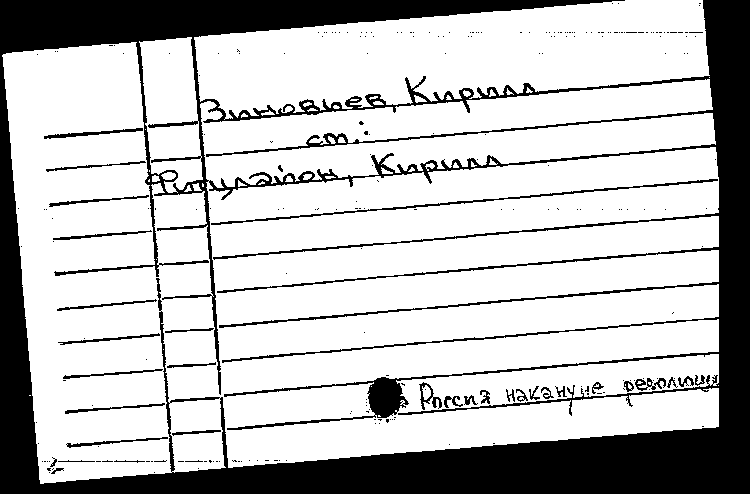 Зиновьев, Кирилл
ст.:
Фитцлайон, Кирилл
Россия накануне революции